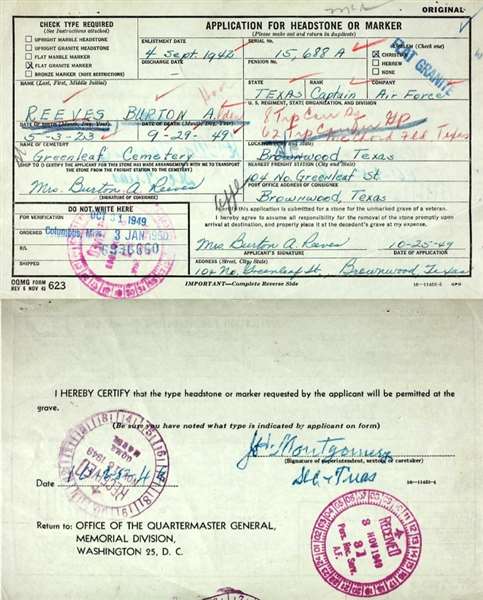 ORIGINAL
CHECK TYPE REQUIRED
(See Instructions attached)
UPRIGHT MARBLE HEADSTONE
UPRIGHT GRANITE HEADSTONE
FLAT MARBLE MARKER
X FLAT GRANITE MARKER
BRONZE MARKER (NOTE RESTRICTIONS)
APPLICATION FOR HEADSTONE OR MARKER
(Please make out and return in duplicate)
ENLISTMENT DATE
4 Sept. 1942
DISCHARGE DATE
SERIAL No.
15,688 A
PENSION No.
EMBLEM (Check one)
CHRISTIAN
HEBREW
NONE
FLAT GRANITE
NAME (Last, First, Middle Initial)
REEVES BURTON A.
STATE
TEXAS
RANK
Captain
COMPANY
Air Force
U. S. REGIMENT, STATE ORGANIZATION AND DIVISION
8 Trp Carr Sq
62 Trp Carrier Gp
DATE OF BIRTH (Month, Day, Year)
5-3-23
DATE OF DEATH (Month, Day, Year)
9-29-49
NAME OF CEMETERY
Greenleaf Cemetery
LOCATION (City and State)
Brownwood, Texas
SHIP TO (I CERTIFY THE APPLICANT FOR THIS STONE HAS MADE ARRANGEMENTS WITH ME TO TRANSPORT THE STONE FROM THE FREIGHT STATION TO THE CEMETERY)
Mrs. Burton A. Reeves
(SIGNATURE OF CONSIGNEE)
NEAREST FREIGHT STATION
104 No. Greenleaf St.
POST OFFICE ADDRESS OF CONSIGNEE
Brownwood, Texas
DO NOT WRITE HERE
FOR VERIFICATION
OCT 31 1949
ORDERED
Columbus, Miss.
3 JAN 1950
B/L
SHIPPED
This application is submitted for a stone for the unmarked grave of a veteran.
I hereby agree to assume all responsibility for the removal of the stone promptly upon arrival at destination, and properly place it at the decedent's grave at my expense.
Mrs Burton A. Reeves 10-25-49
APPLICANT'S SIGNATURE
DATE OF APPLICATION
ADDRESS (Street, City, State)
104 No. Greenleaf St. Brownwood, Texas
OQMG FORM
REV 6 NOV 45 623
IMPORTANT—Complete Reverse Side
I HEREBY CERTIFY that the type headstone or marker requested by the applicant will be permitted at the
grave.
(Be sure you have noted what type is indicated by applicant on form)
Montgomery
(Signature of superintendent, sexton or caretaker)
Sec & Treas
Date
Return to: OFFICE OF THE QUARTERMASTER GENERAL,
MEMORIAL DIVISION,
WASHINGTON 25, D. C.
RECEIVED
8 NOV 1949